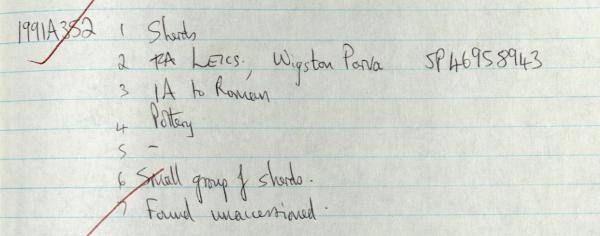 1991A352 1 Sherds
2 RA LEICS, Wigston Parva SP46958943
3 IA to Roman
4 Pottery
5 -
6 Small group of sherds.
7 Found unaccessioned.